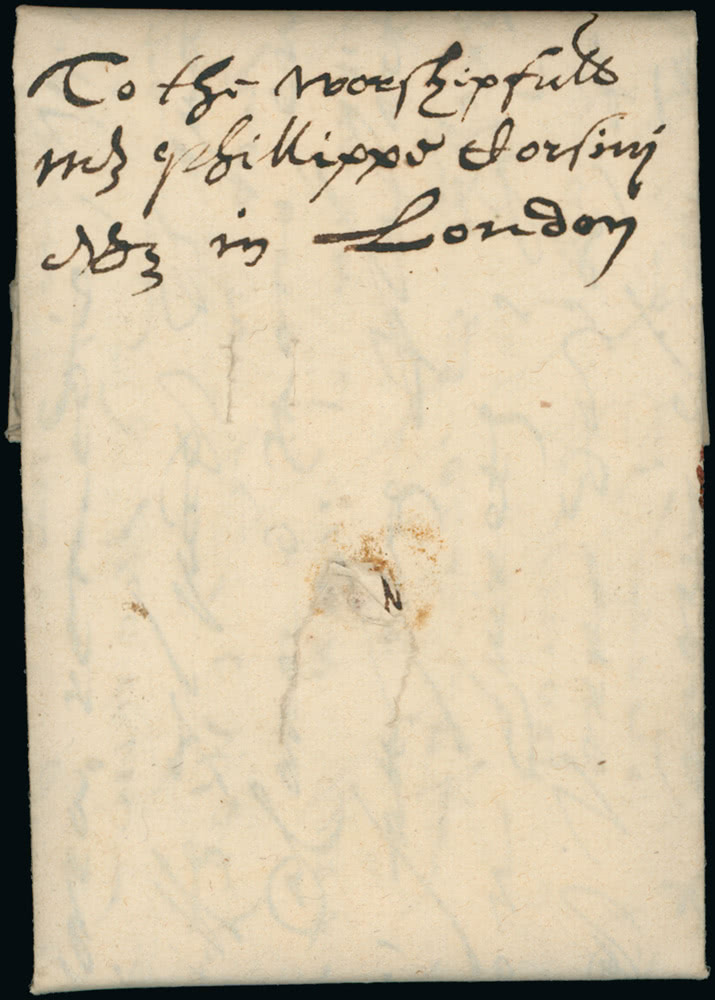 To the worshipfull
mr Phillippe Corsini
in London
N